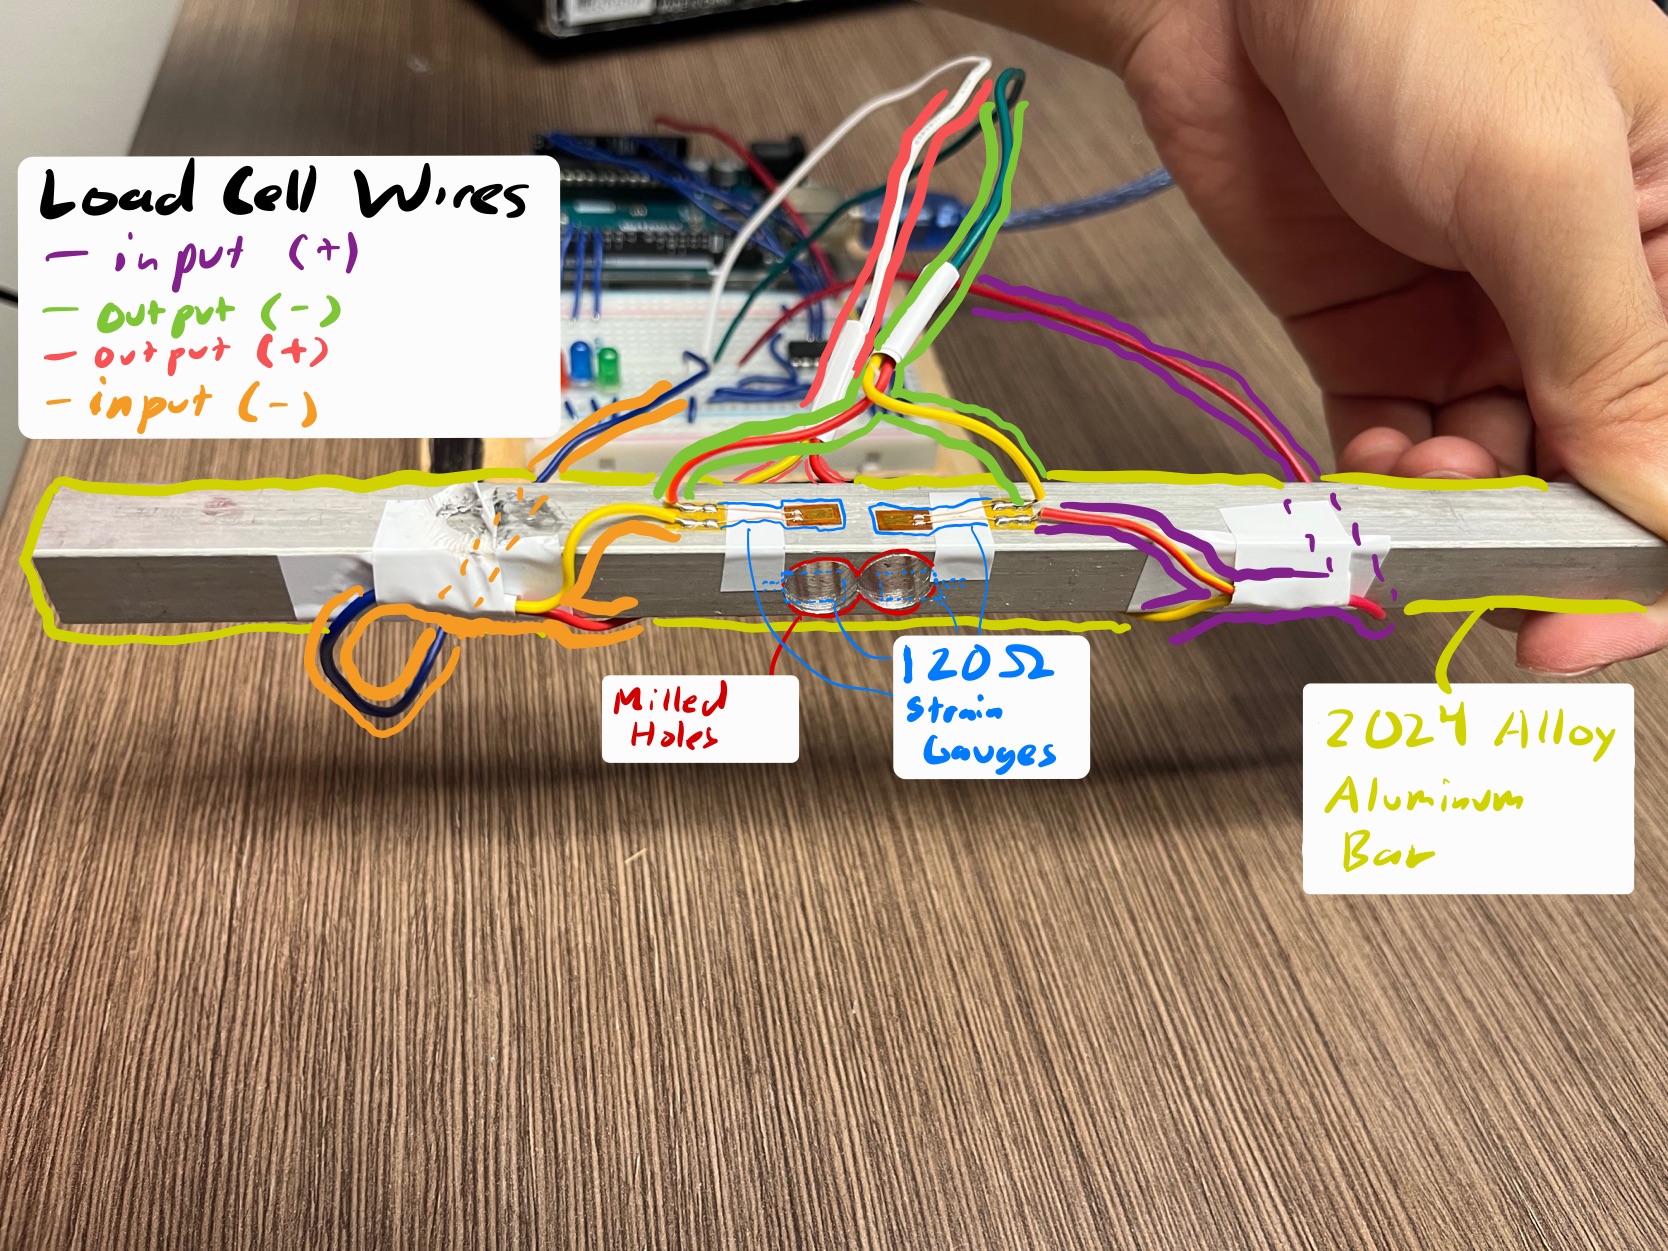 Load Cell Wires
- input (+)
- output (-)
- output (+)
- input (-)
Milled
Holes
120Ω
Strain
Gauges
2024 Alloy
Aluminum
Bar